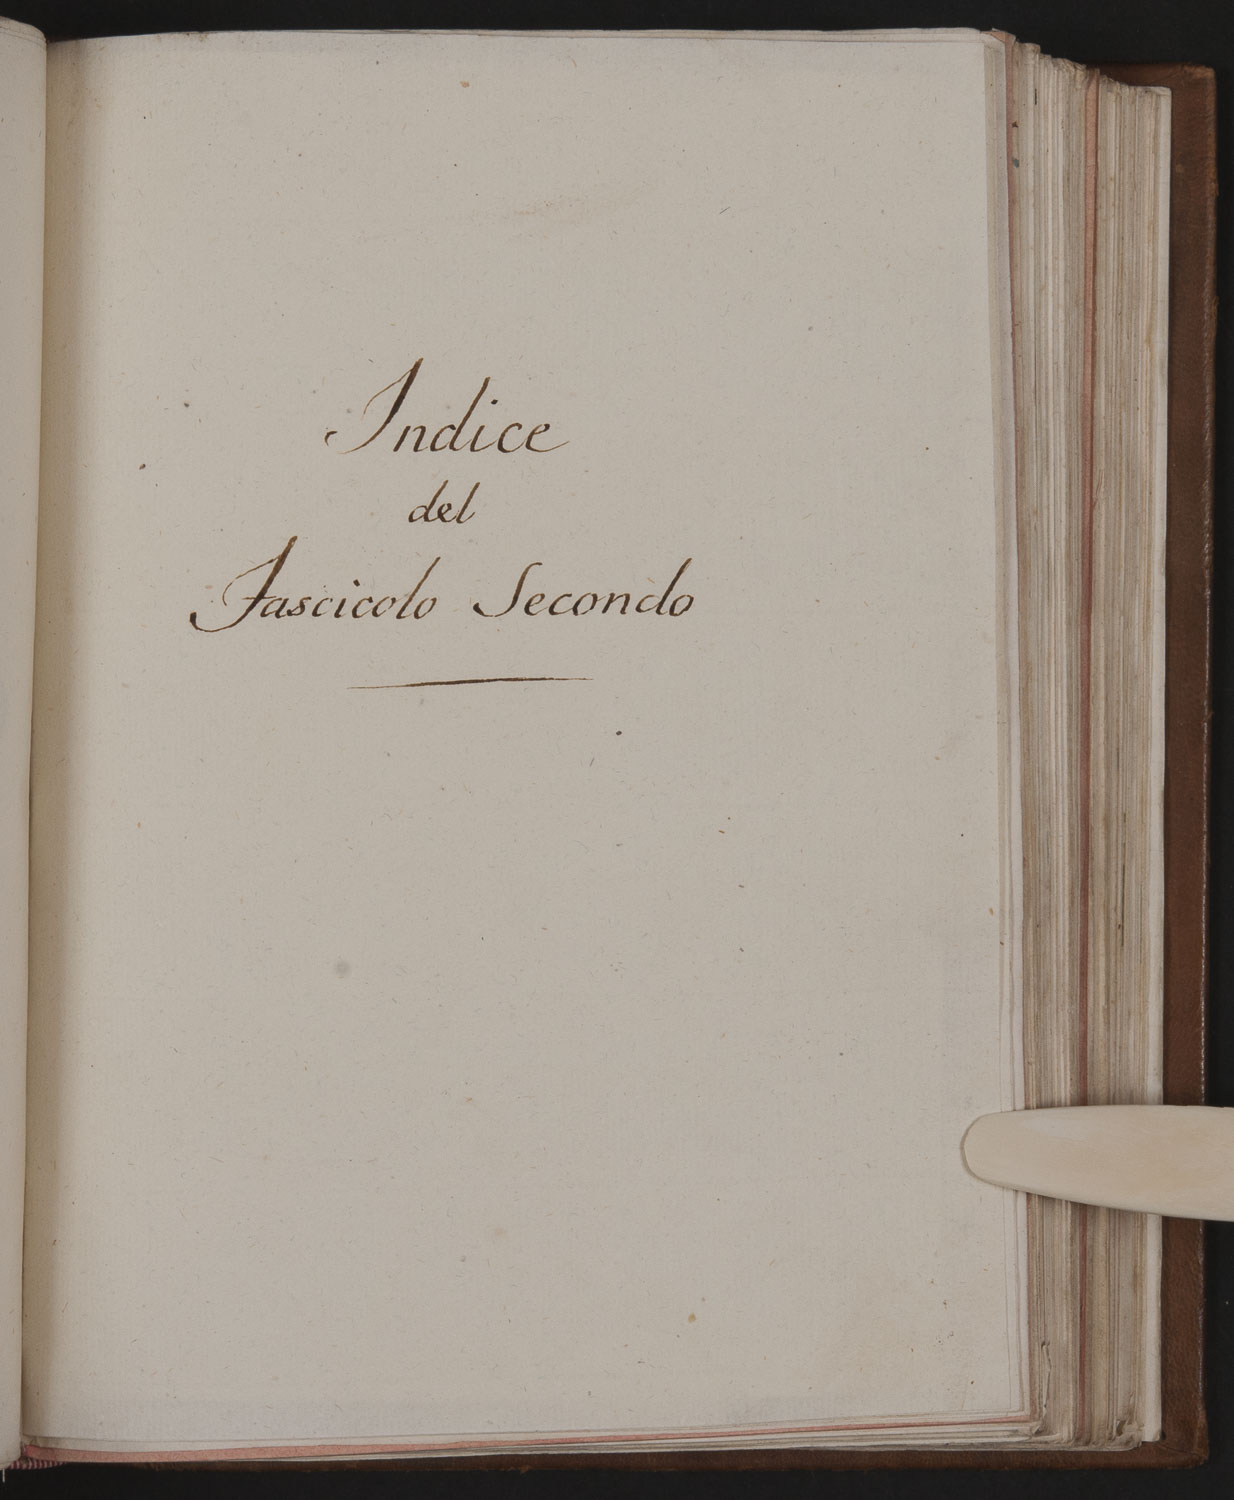 Indice
del
Fascicolo Secondo